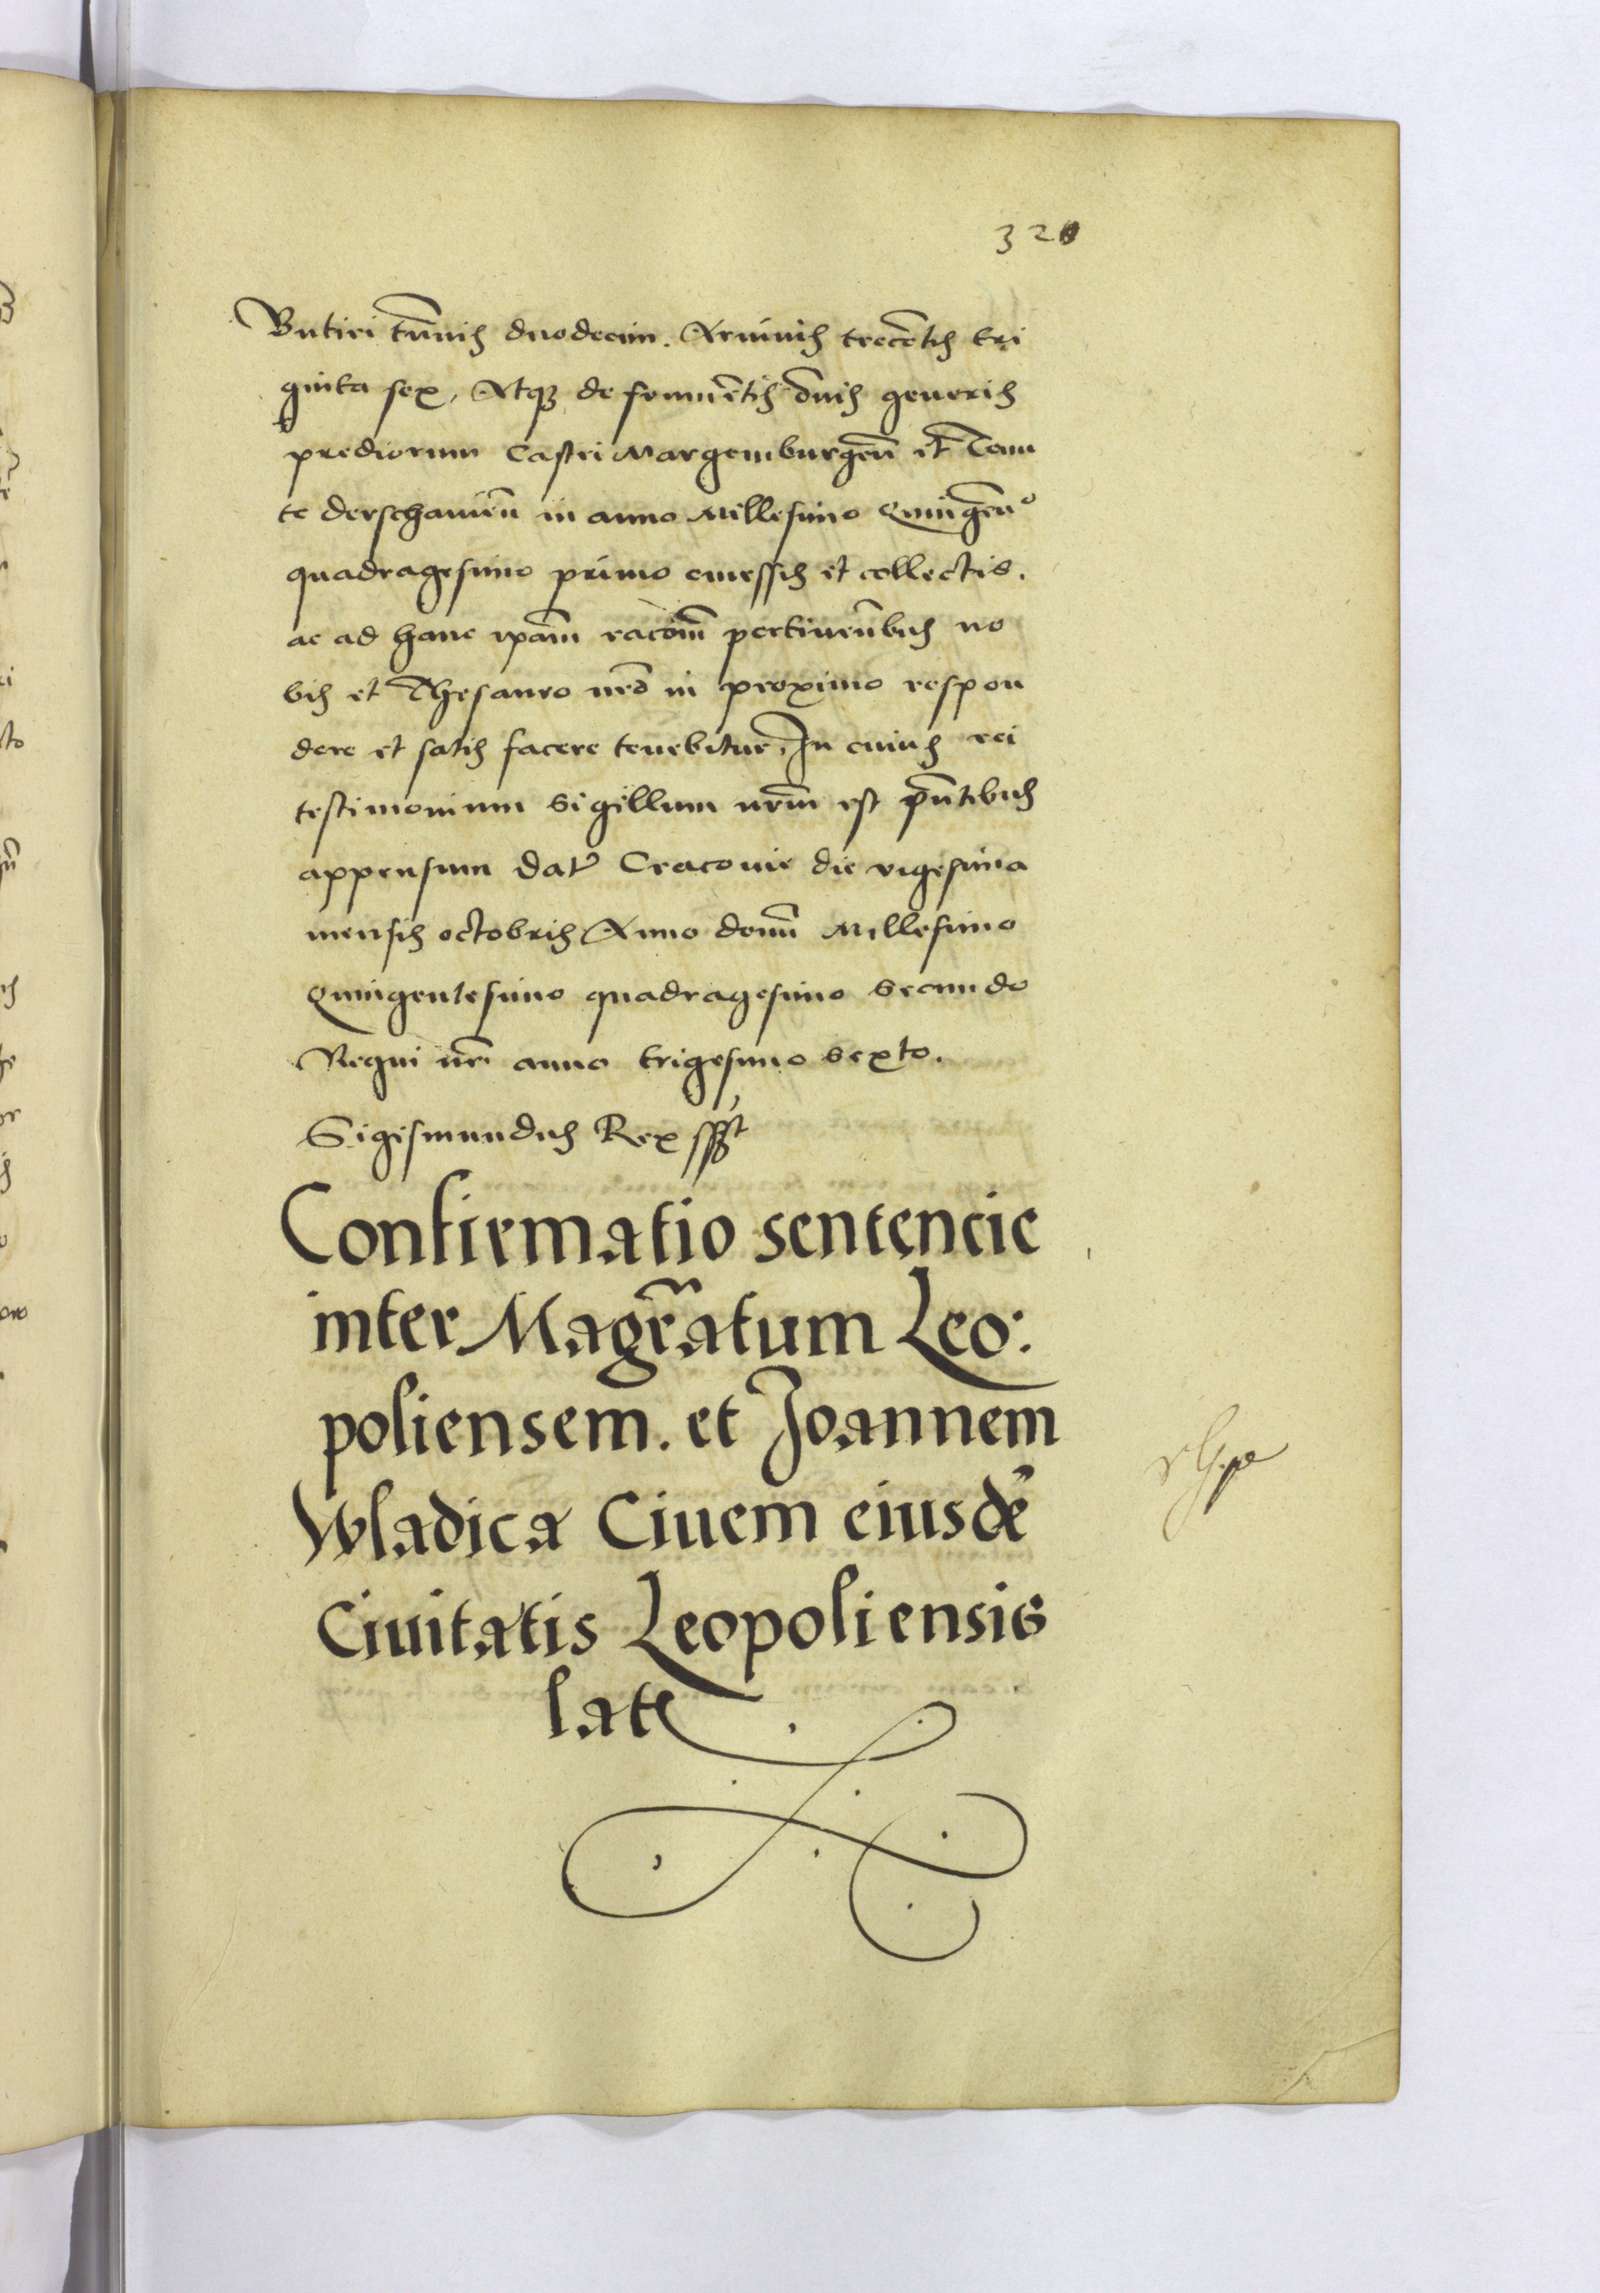 Butiri tunnis duodecim. Aruinis trecētis tri
ginta sex, Atq; de frumētis oīnis generis
prediorum Castri Margemburgeñ et Tenu
te derschauieñ in anno Millesimo Quingeno
quadragesimo primo emessis et collectis.
ac ad hanc ipam racōem pertineñbus no
bis et Thesauro nro in proximo respon
dere et satis facere tenebitur, In cuius rei
testimonium Sigillum nrm est pñtibus
appensum Dat Cracouie die vigesima
mensis octobris Anno domi Millesimo
Quingentesimo quadragesimo secundo
Regni nri anno trigesimo sexto.
Sigismundus Rex sspt
Confirmatio sentencie
inter Magratum Leo:
poliensem. et Joannem
Wladica Ciuem eiusdē
Ciuitatis Leopoliensis
late